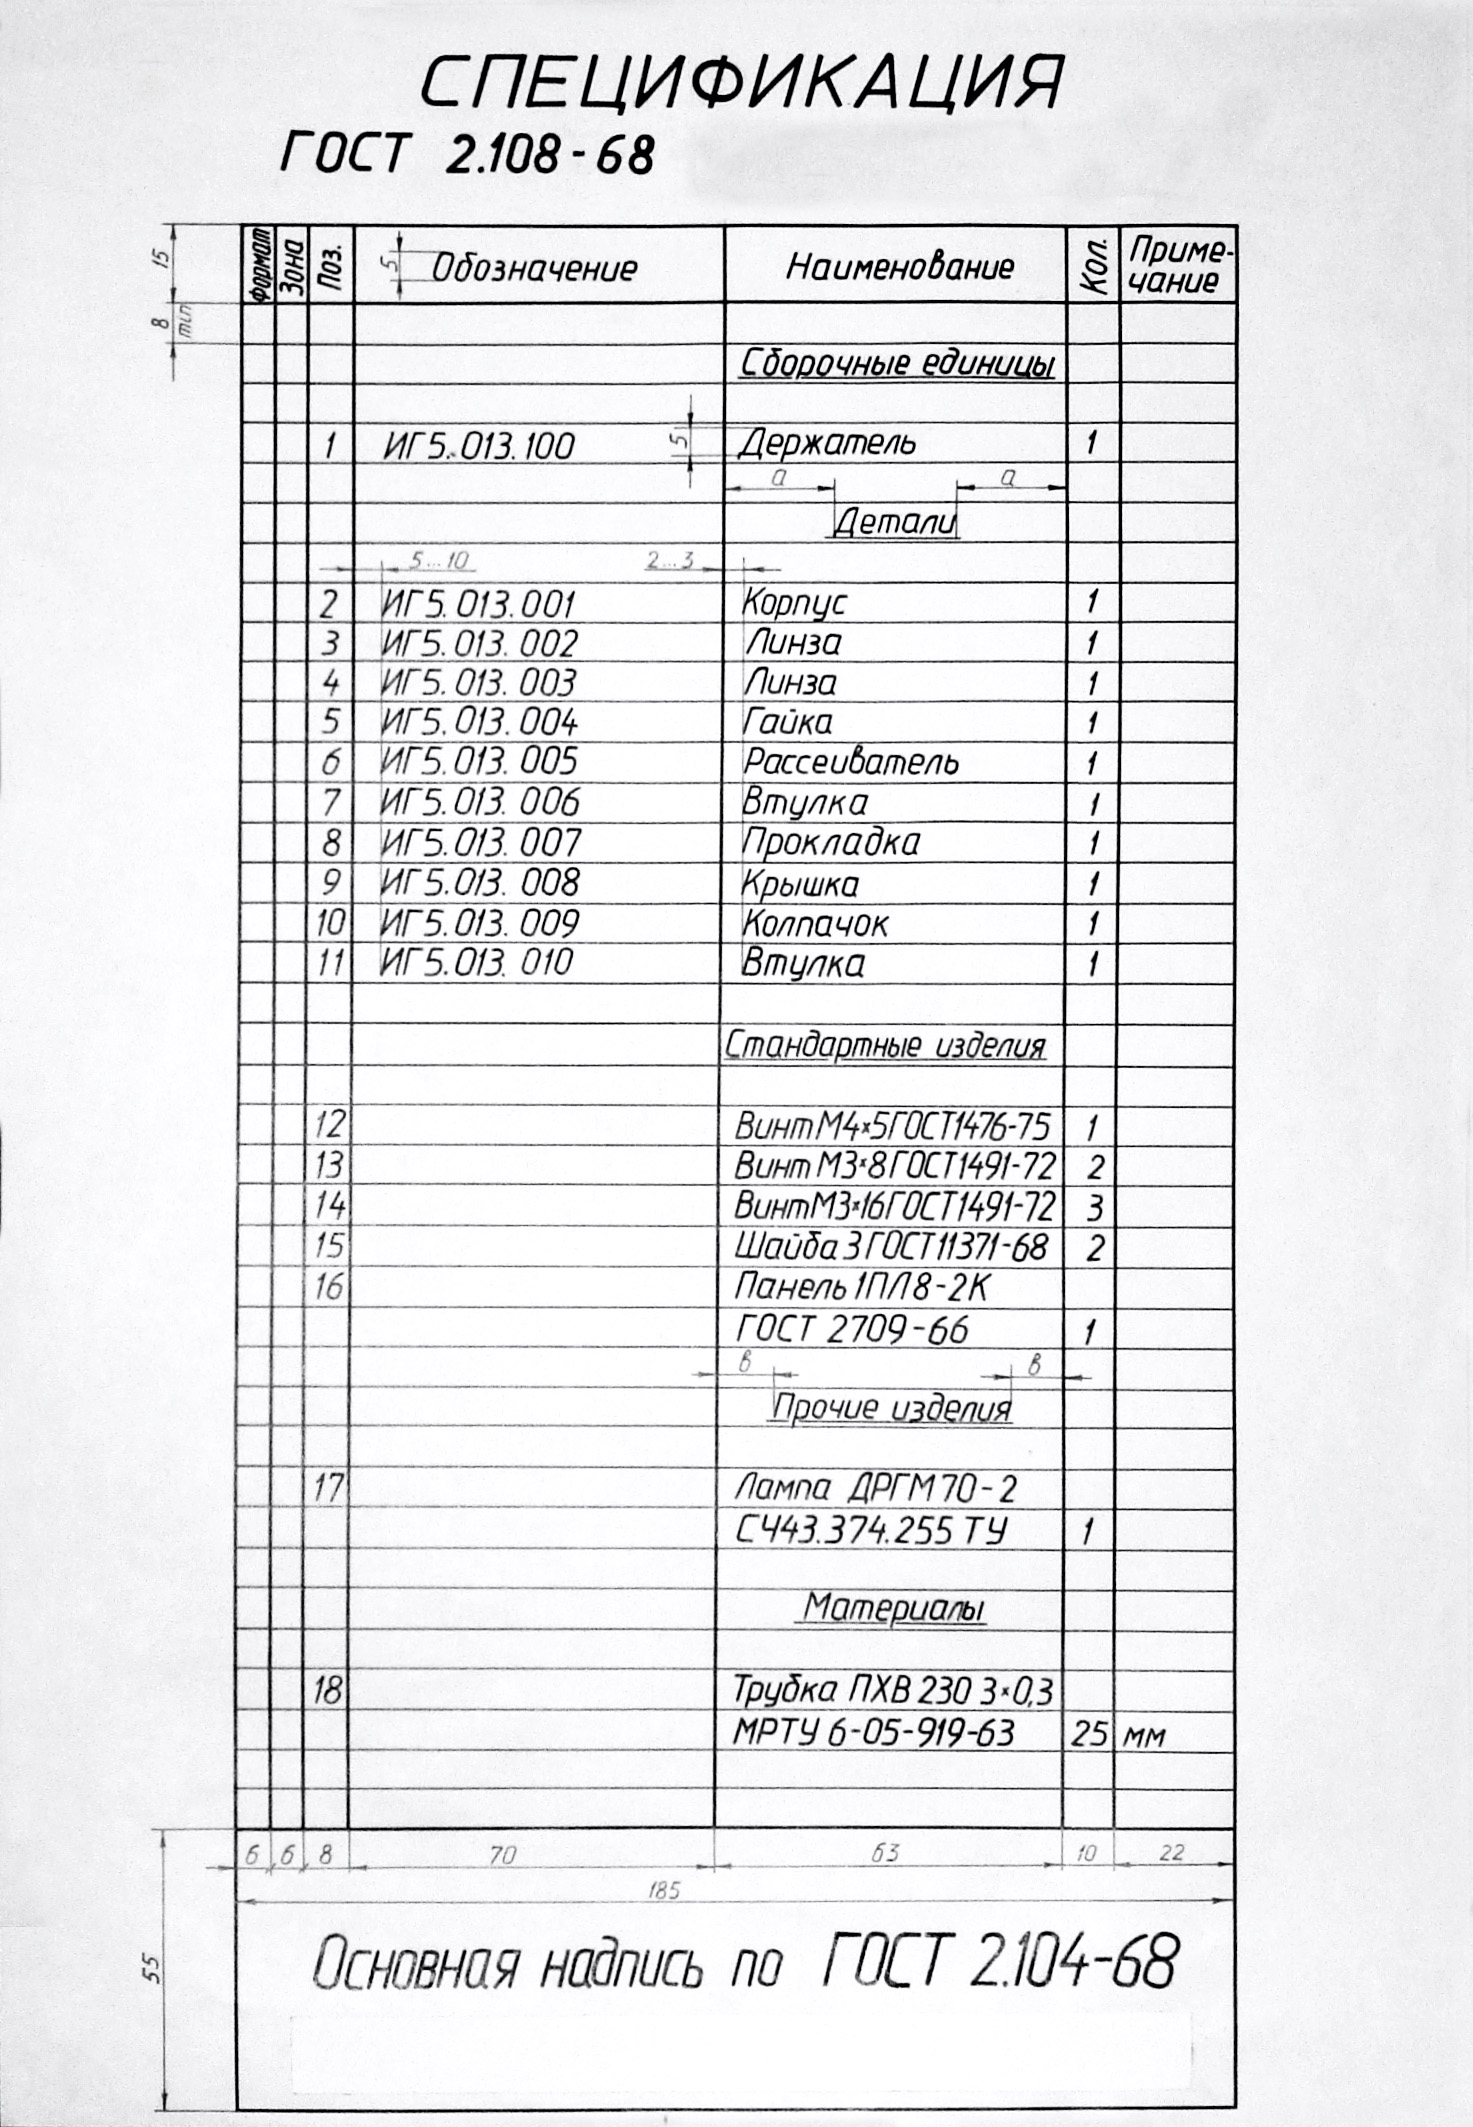 СПЕЦИФИКАЦИЯ
ГОСТ 2.108-68
15
Формат Зона Поз. 5 Обозначение Наименование Кол. Приме-
чание
8 min
Сборочные единицы
1 ИГ5.013.100 5 Держатель 1
а а
Детали
5...10 2...3
2 ИГ5.013.001 Корпус 1
3 ИГ5.013.002 Линза 1
4 ИГ5.013.003 Линза 1
5 ИГ5.013.004 Гайка 1
6 ИГ5.013.005 Рассеиватель 1
7 ИГ5.013.006 Втулка 1
8 ИГ5.013.007 Прокладка 1
9 ИГ5.013.008 Крышка 1
10 ИГ5.013.009 Колпачок 1
11 ИГ5.013.010 Втулка 1
Стандартные изделия
12 Винт М4×5 ГОСТ1476-75 1
13 Винт М3×8 ГОСТ1491-72 2
14 Винт М3×16 ГОСТ1491-72 3
15 Шайба 3 ГОСТ11371-68 2
16 Панель 1ПЛ8-2К
ГОСТ 2709-66 1
в в
Прочие изделия
17 Лампа ДРГМ70-2
СЧ43.374.255 ТУ 1
Материалы
18 Трубка ПХВ 230 3×0,3
МРТУ 6-05-919-63 25 мм
6 6 8 70 63 10 22
185
55
Основная надпись по ГОСТ 2.104-68